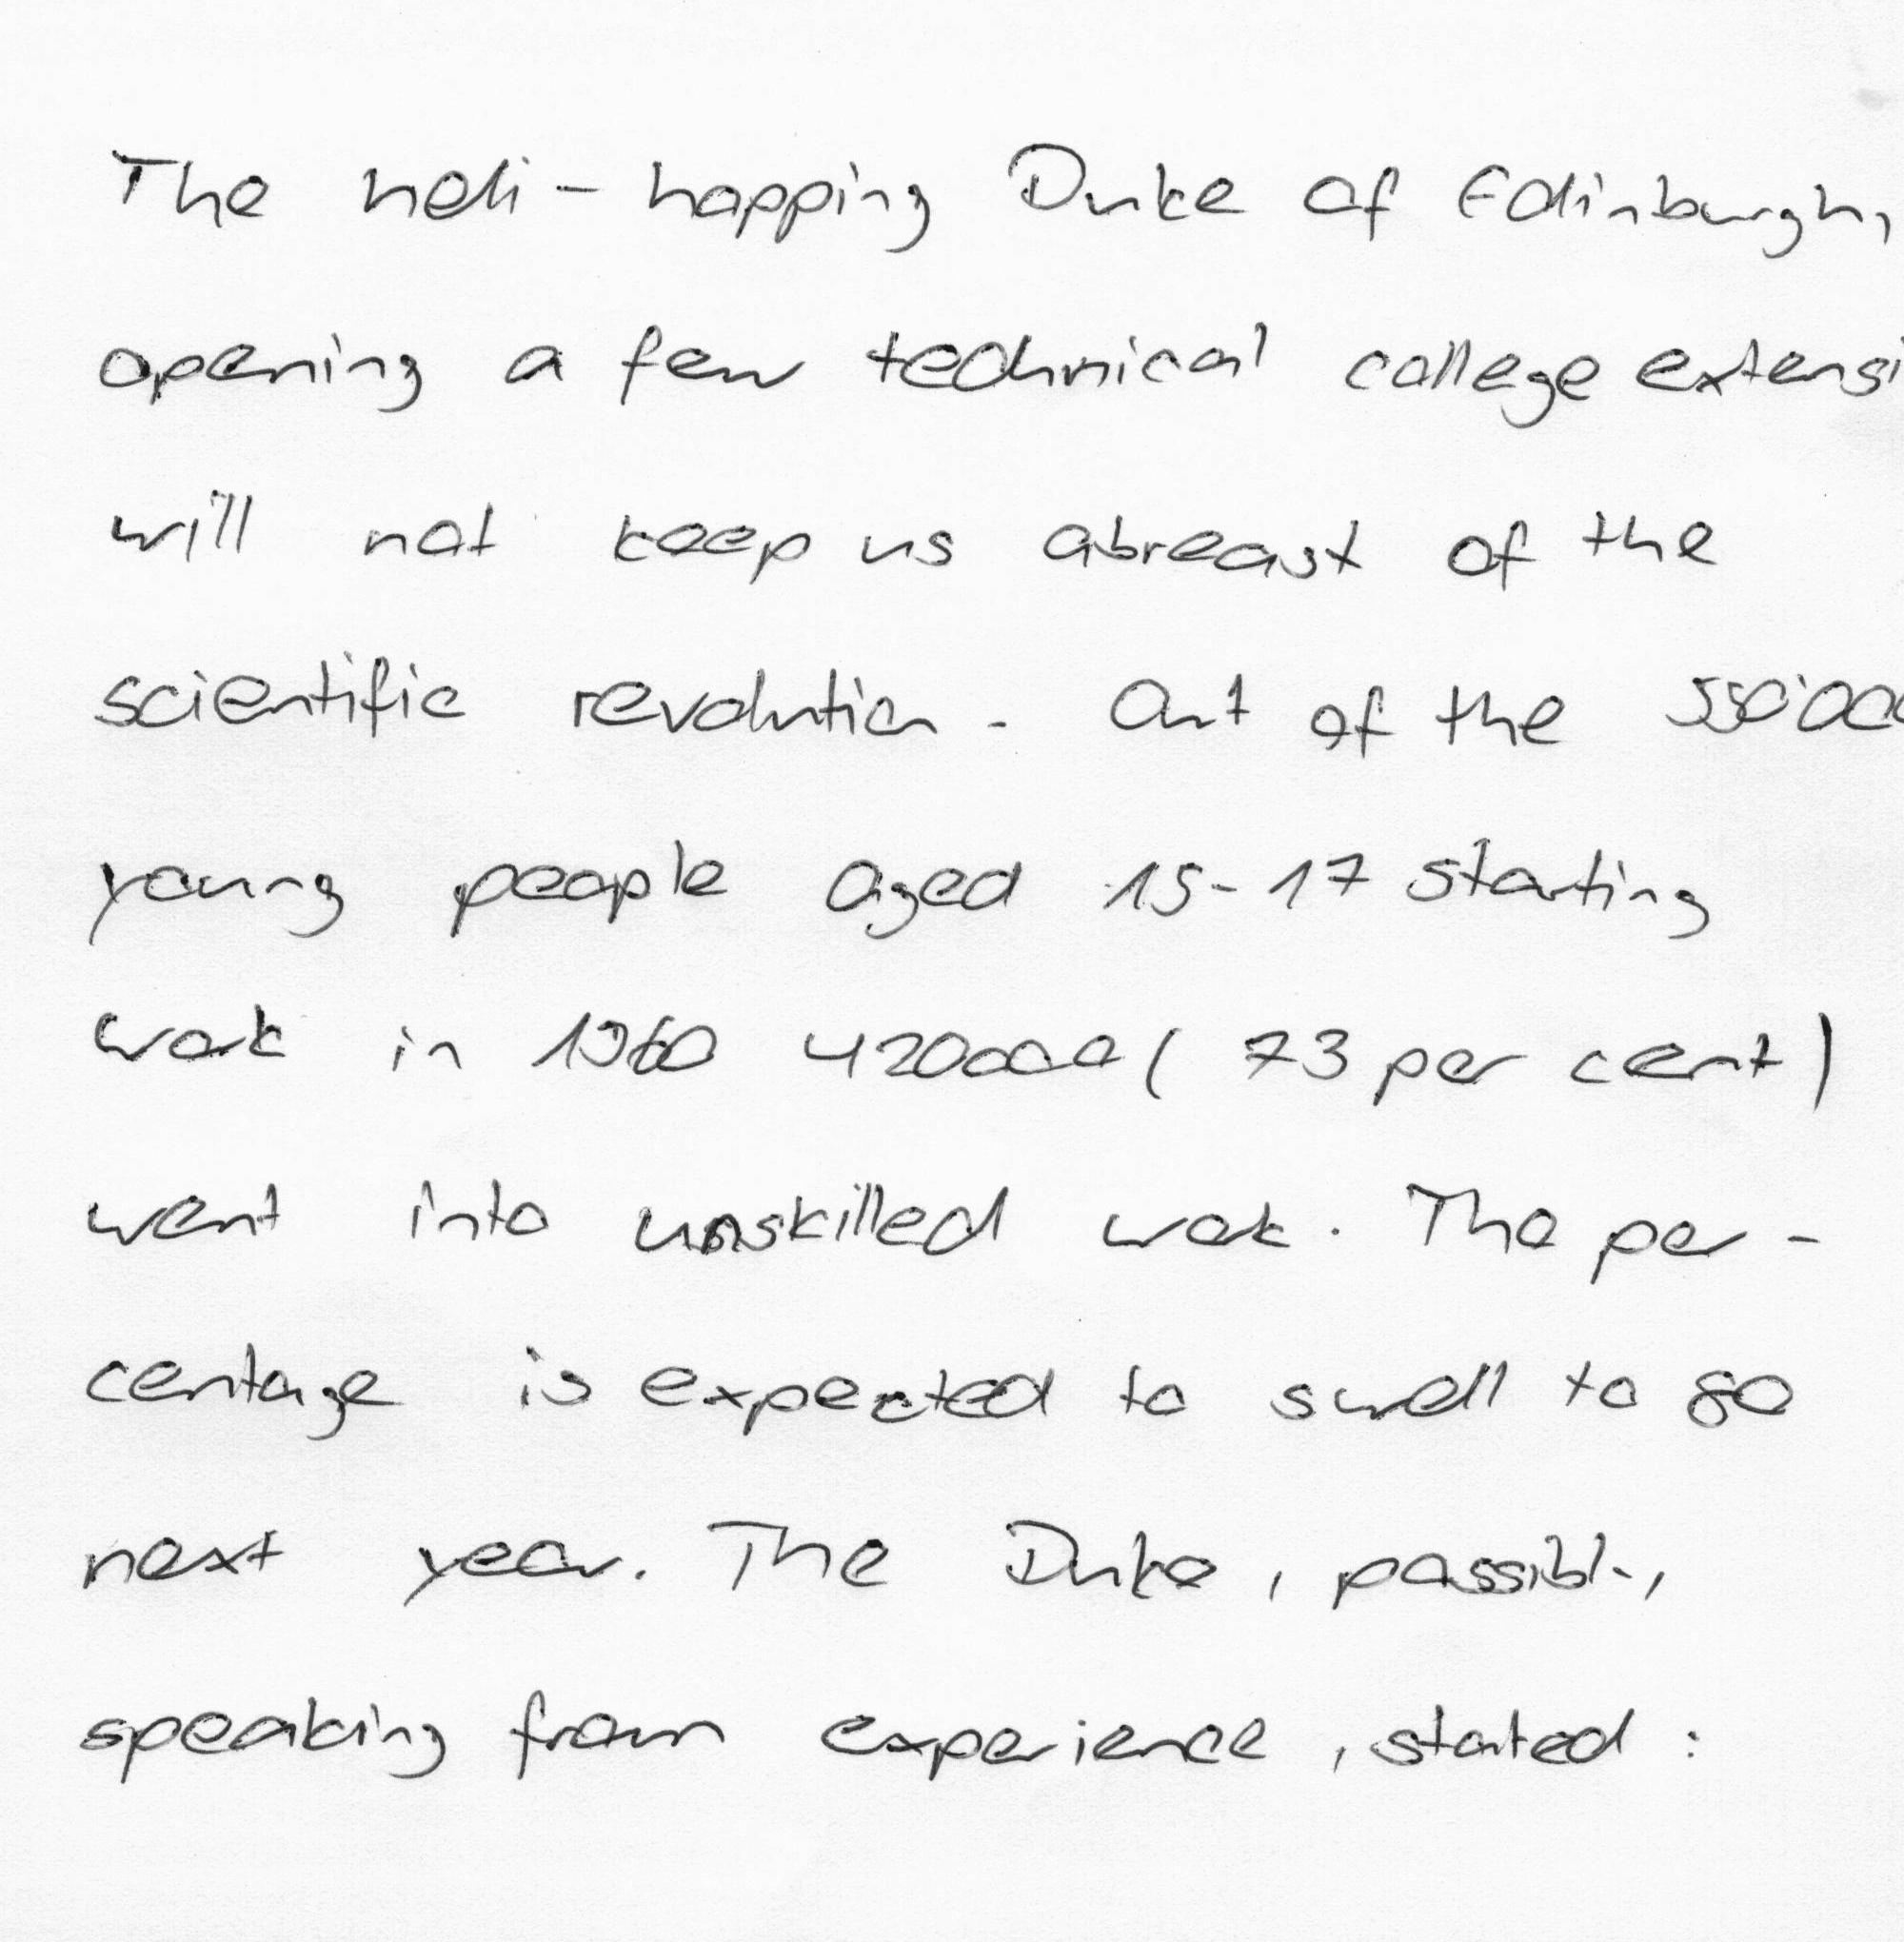 The heli-hopping Duke of Edinburgh,
opening a few technical college extensi
will not keep us abreast of the
scientific revolution. Out of the
young people aged 15-17 starting
work in 1960 420000 ( 73 per cent )
went into unskilled work. The per-
centage is expected to swell to 80
next year. The Duke, possibly,
speaking from experience, stated: